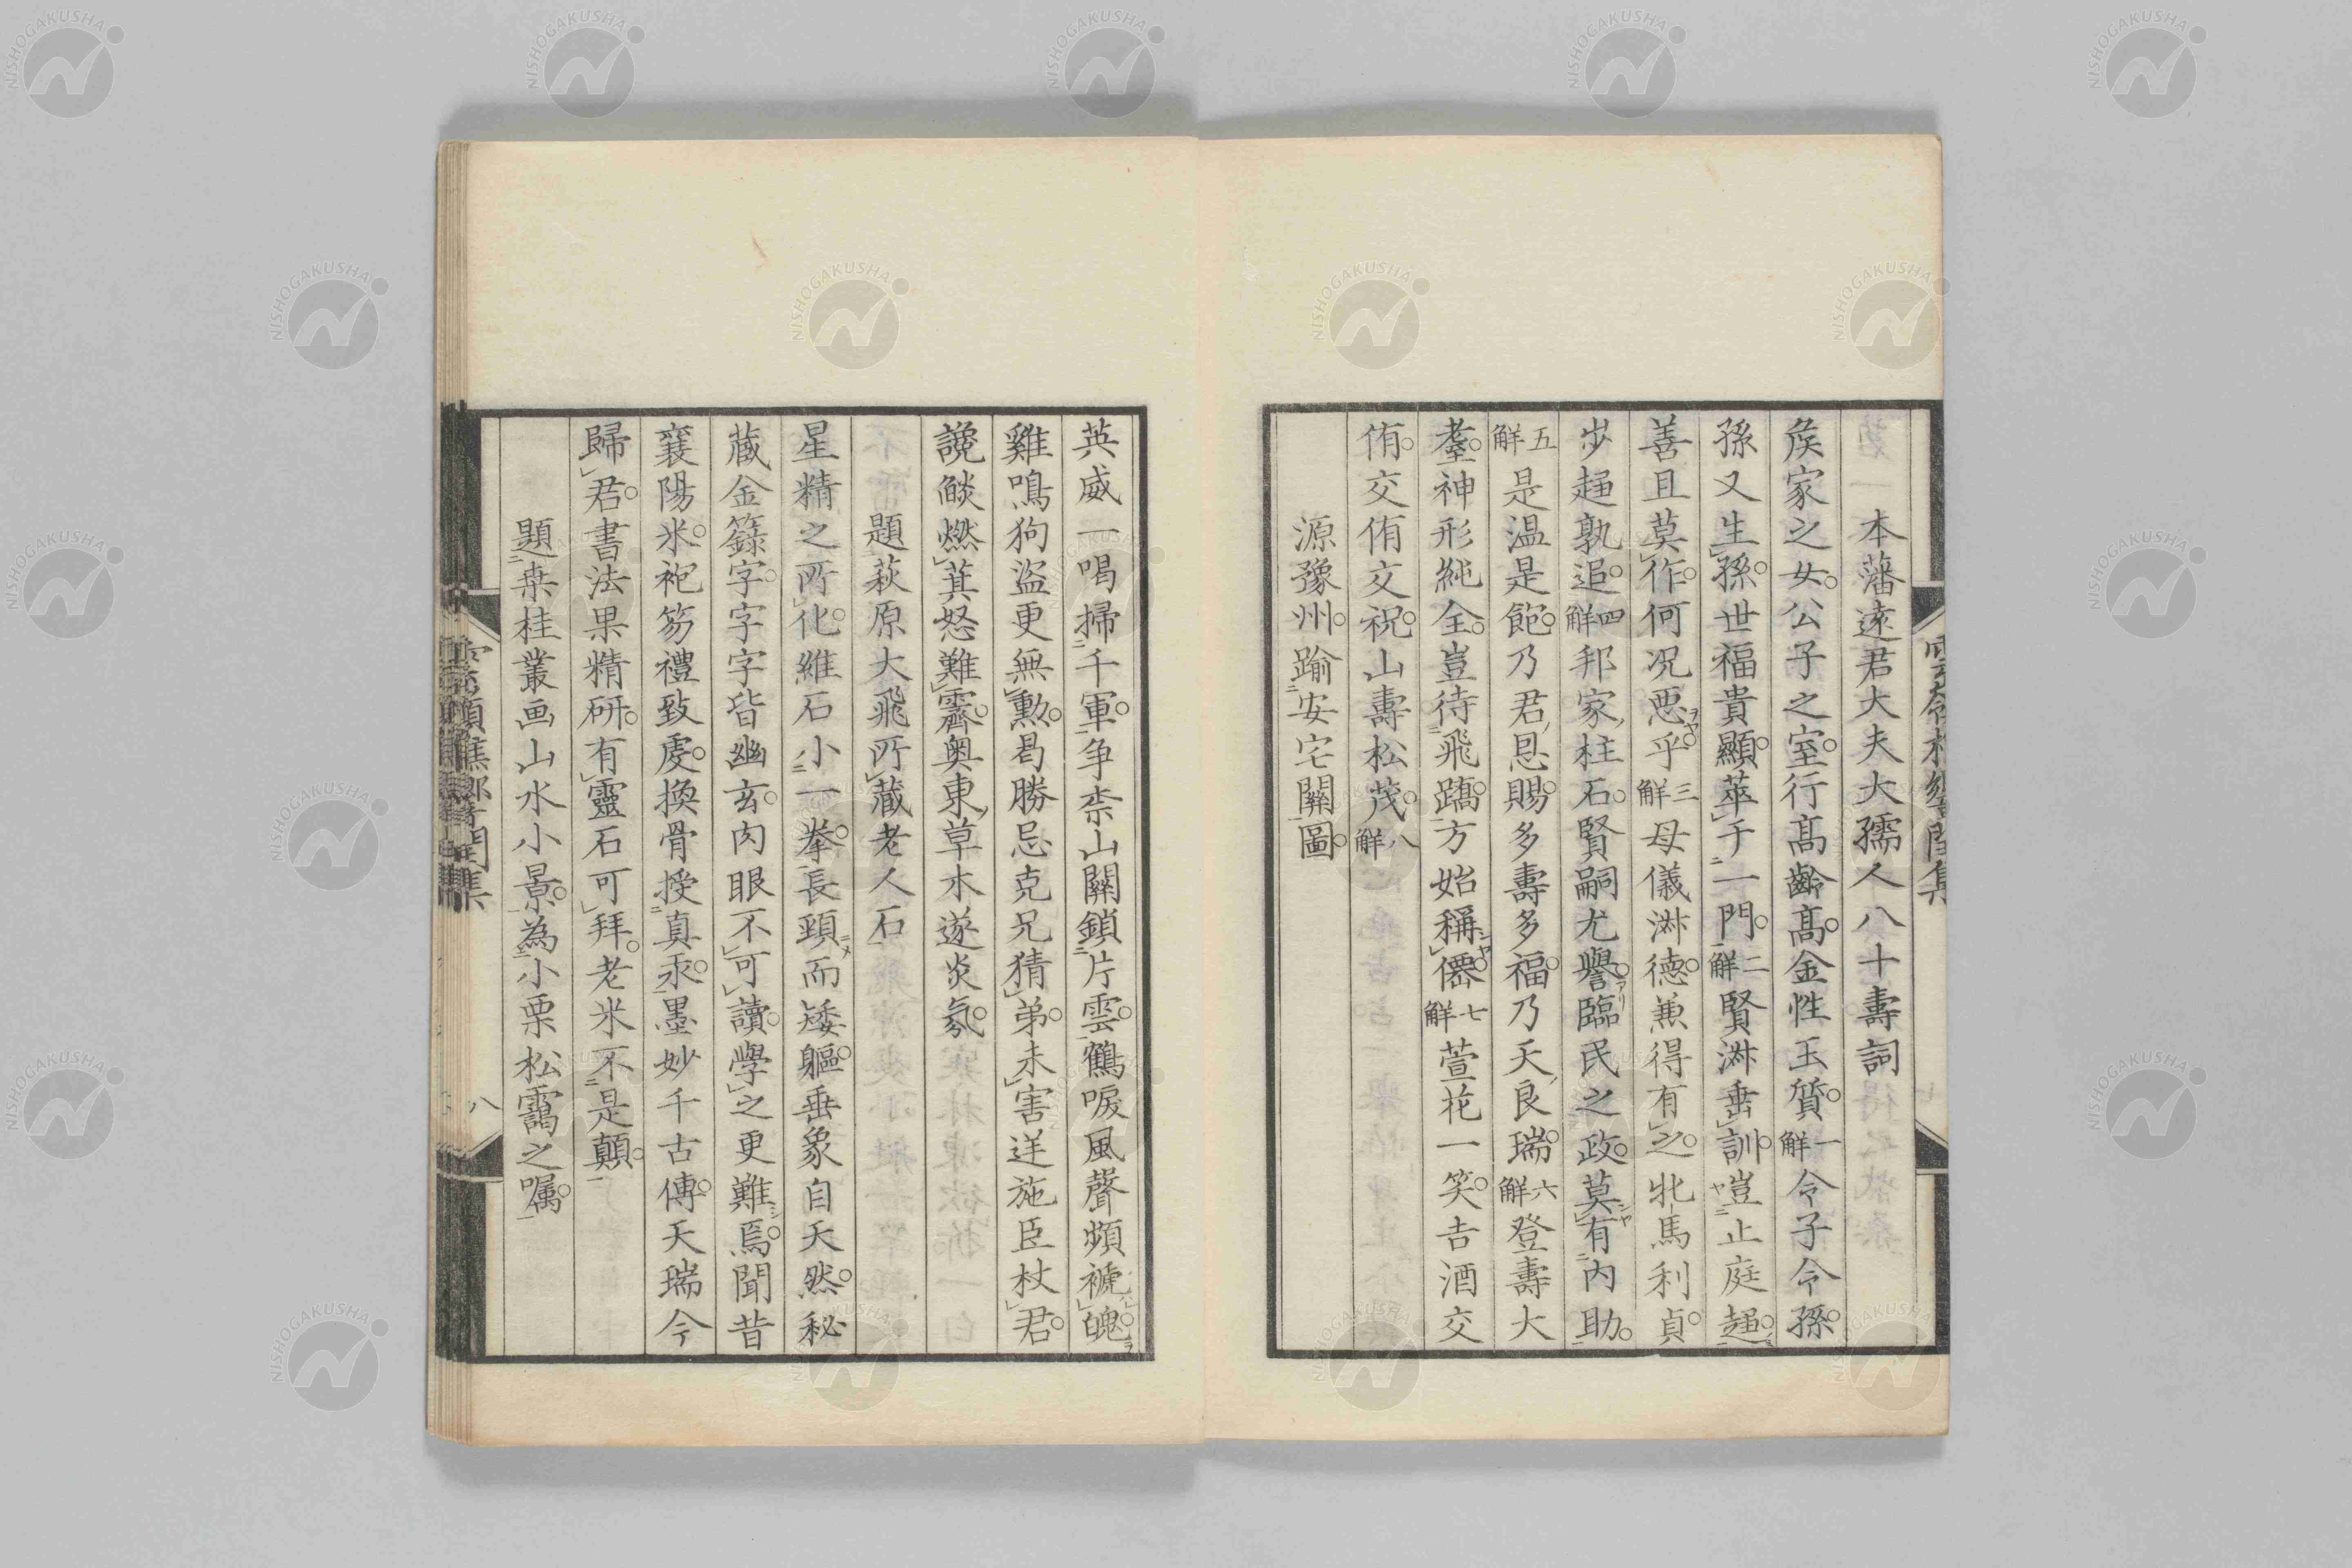 本藩遠君大夫大孺人八十壽詞
矦家之女公子之室行高齡高金性玉質一解令子令孫
孫又生孫世福貴顯萃于一門二解賢淑垂訓豈止庭趨
善且莫作何况悪乎三解母儀淑德兼得有之牝馬利貞
步趨孰追四解邦家柱石賢嗣尤譽臨民之政莫有内助
五解是温是飽乃君恩賜多壽多福乃天良瑞六解登壽大
耋神形純全豈待飛蹻方始稱僊七解萱花一笑吉酒交
侑交侑交祝山壽松茂八解
源豫州踰安宅關圖
英威一喝掃千軍争柰山關鎖片雲鶴唳風聲頻褫魄
雞鳴狗盜更無勳曷勝忌克兄猜弟未害送施臣杖君
讒燄燃萁怒難霽奥東草木遂炎氛
題萩原大飛所藏老人石
星精之所化維石小一拳長頸而矮軀垂象自天然秘
藏金籙字字字皆幽玄肉眼不可讀學之更難焉聞昔
襄陽米袍笏禮致虔換骨授真汞墨妙千古傳天瑞今
歸君書法果精研有靈石可拜老米不是顛
題桒桂叢画山水小景為小栗松靄之嘱
八